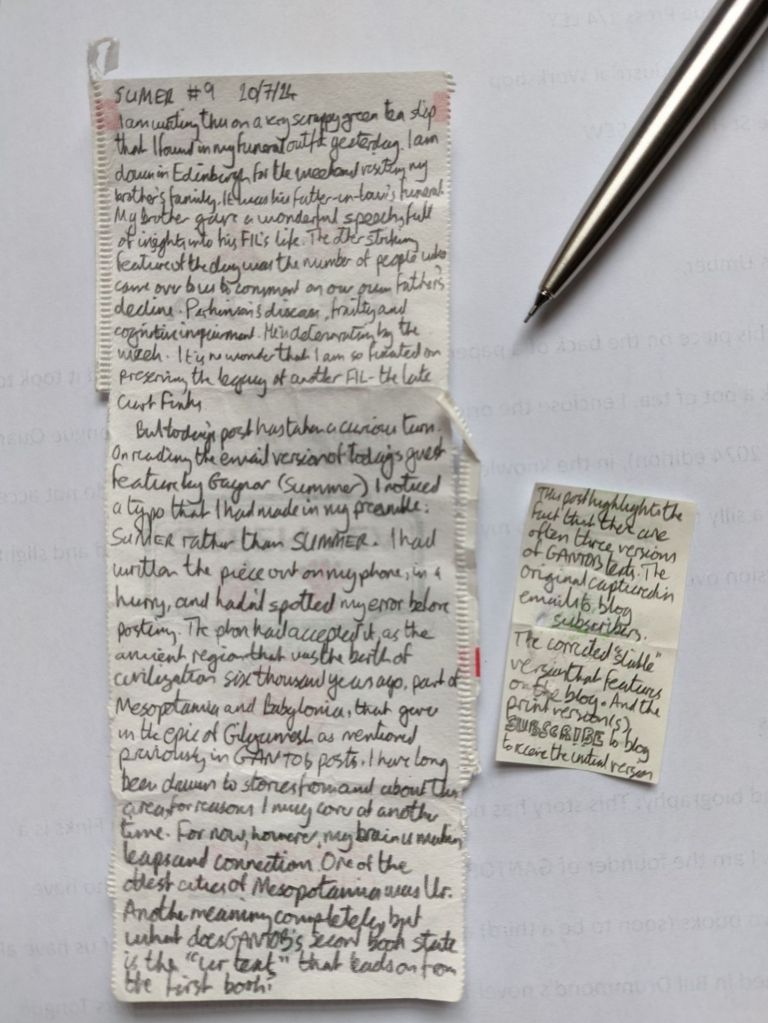 SUMER #9 20/7/24
I am writing this on a v scrappy green tea slip
that I found in my funeral outfit yesterday. I am
down in Edinburgh for the weekend visiting my
brother's family. It was his father-in-law's funeral.
My brother gave a wonderful speech, full
of insights into his FIL's life. The other striking
feature of the day was the number of people who
came over to us to comment on our own father's
decline. Parkinson's disease, frailty and
cognitive impairment. He is deteriorating by the
week. It is no wonder that I am so fixated on
preserving the legacy of another FIL - the late
Curt Finks
But today's post has taken a curious turn.
On reading the email version of today's guest
feature by Gaynor (Summer) I noticed
a typo that I had made in my preamble:
SUMER rather than SUMMER. I had
written the piece out on my phone, in a
hurry, and hadn't spotted my error before
posting. The phone had accepted it, as the
ancient region that was the birth of
civilization six thousand years ago, part of
Mesopotamia and Babylonia, that gave
us the epic of Gilgamesh as mentioned
previously in GANTOB posts. I have long
been drawn to stories from and about this
area for reasons I may cover at another
time. For now, however, my brain is making
leaps and connection. One of the
oldest cities of Mesopotamia was Ur.
Another meaning completely, but
what does GANTOB's second book state
is the "ur text" that leads on from
the first book?
This post highlights the
fact that there are
often three versions
of GANTOB texts. The
original captured in
emails to blog
subscribers.
The corrected "stable"
version that features
on the blog. And the
print version(s).
SUBSCRIBE to blog
to receive the initial version